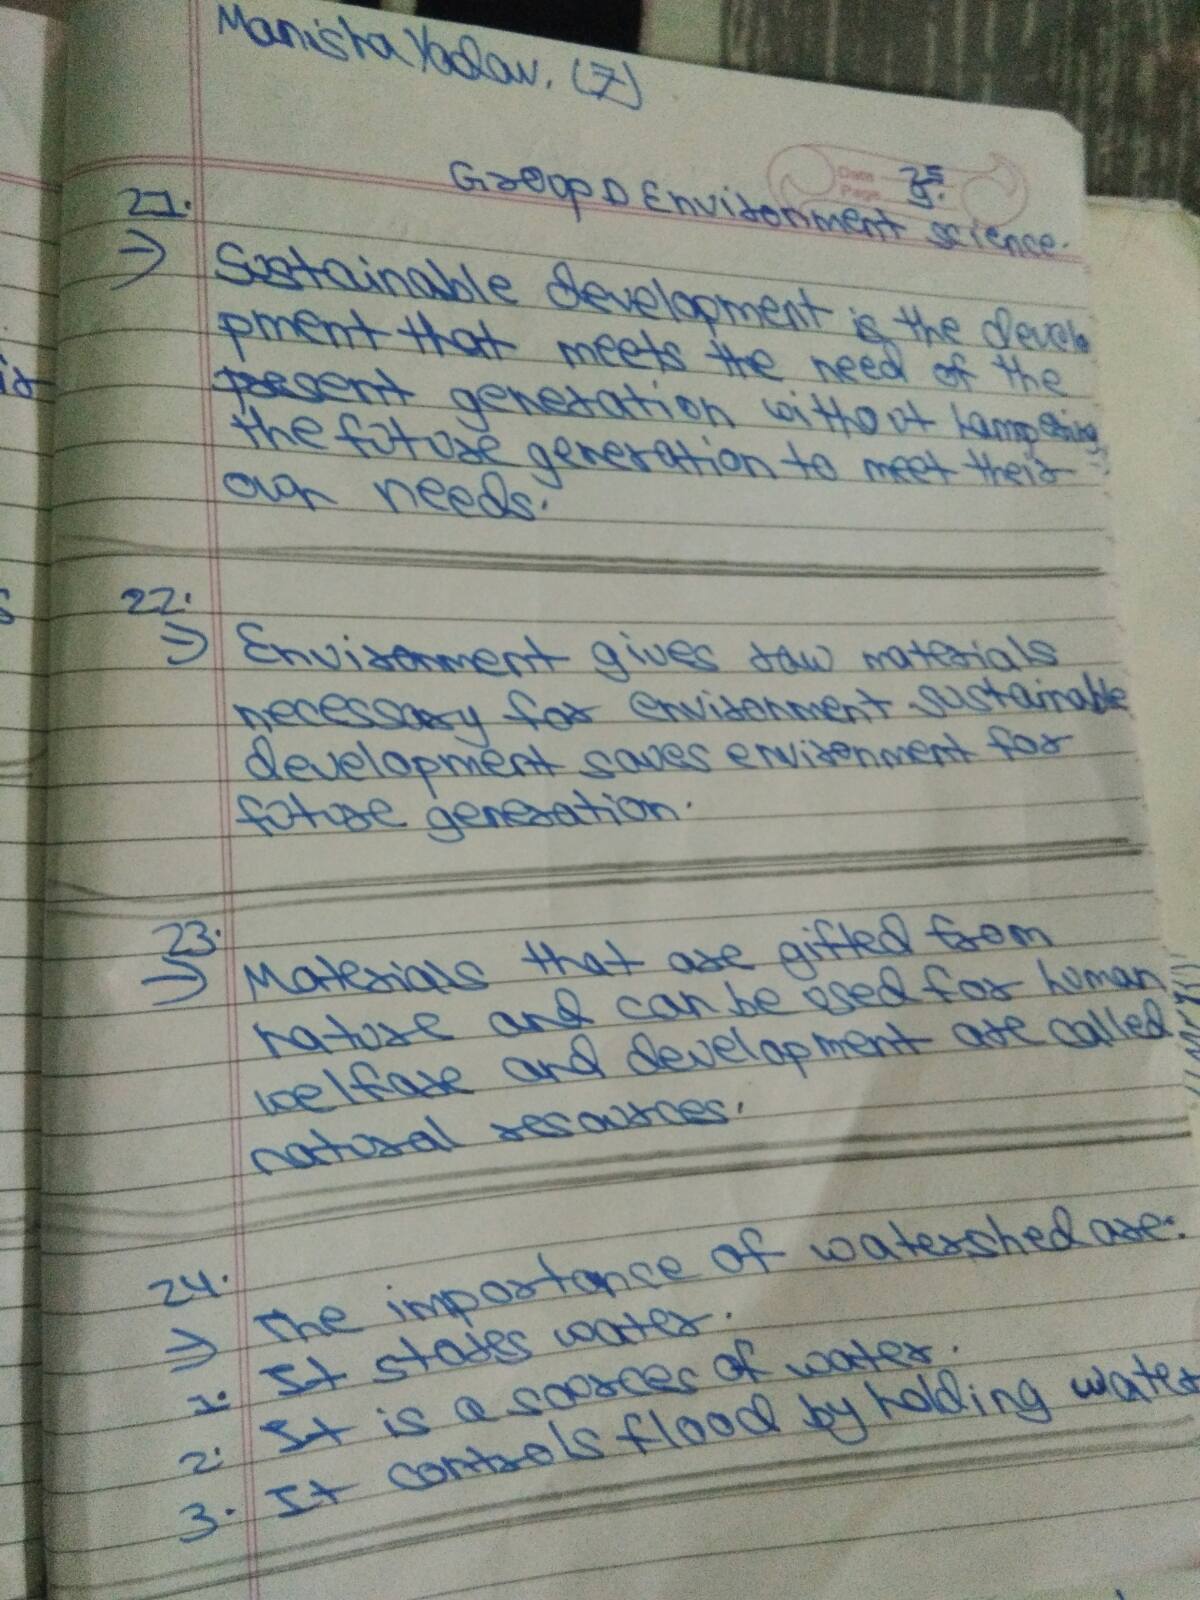 Manisha Yadav. (7)
Date
Page
Group D Environment science.
21.
⇒ Sustainable development is the develo
pment that meets the need of the
present generation without hampering
the future generation to meet their
own needs.
22.
⇒ Environment gives raw materials
necessary for environment sustainable
development saves environment for
future generation.
23.
⇒ Materials that are gifted from
nature and can be used for human
welfare and development are called
natural resources.
24.
⇒ The importance of watershed are:
1. It stores water.
2. It is a sources of water.
3. It controls flood by holding water